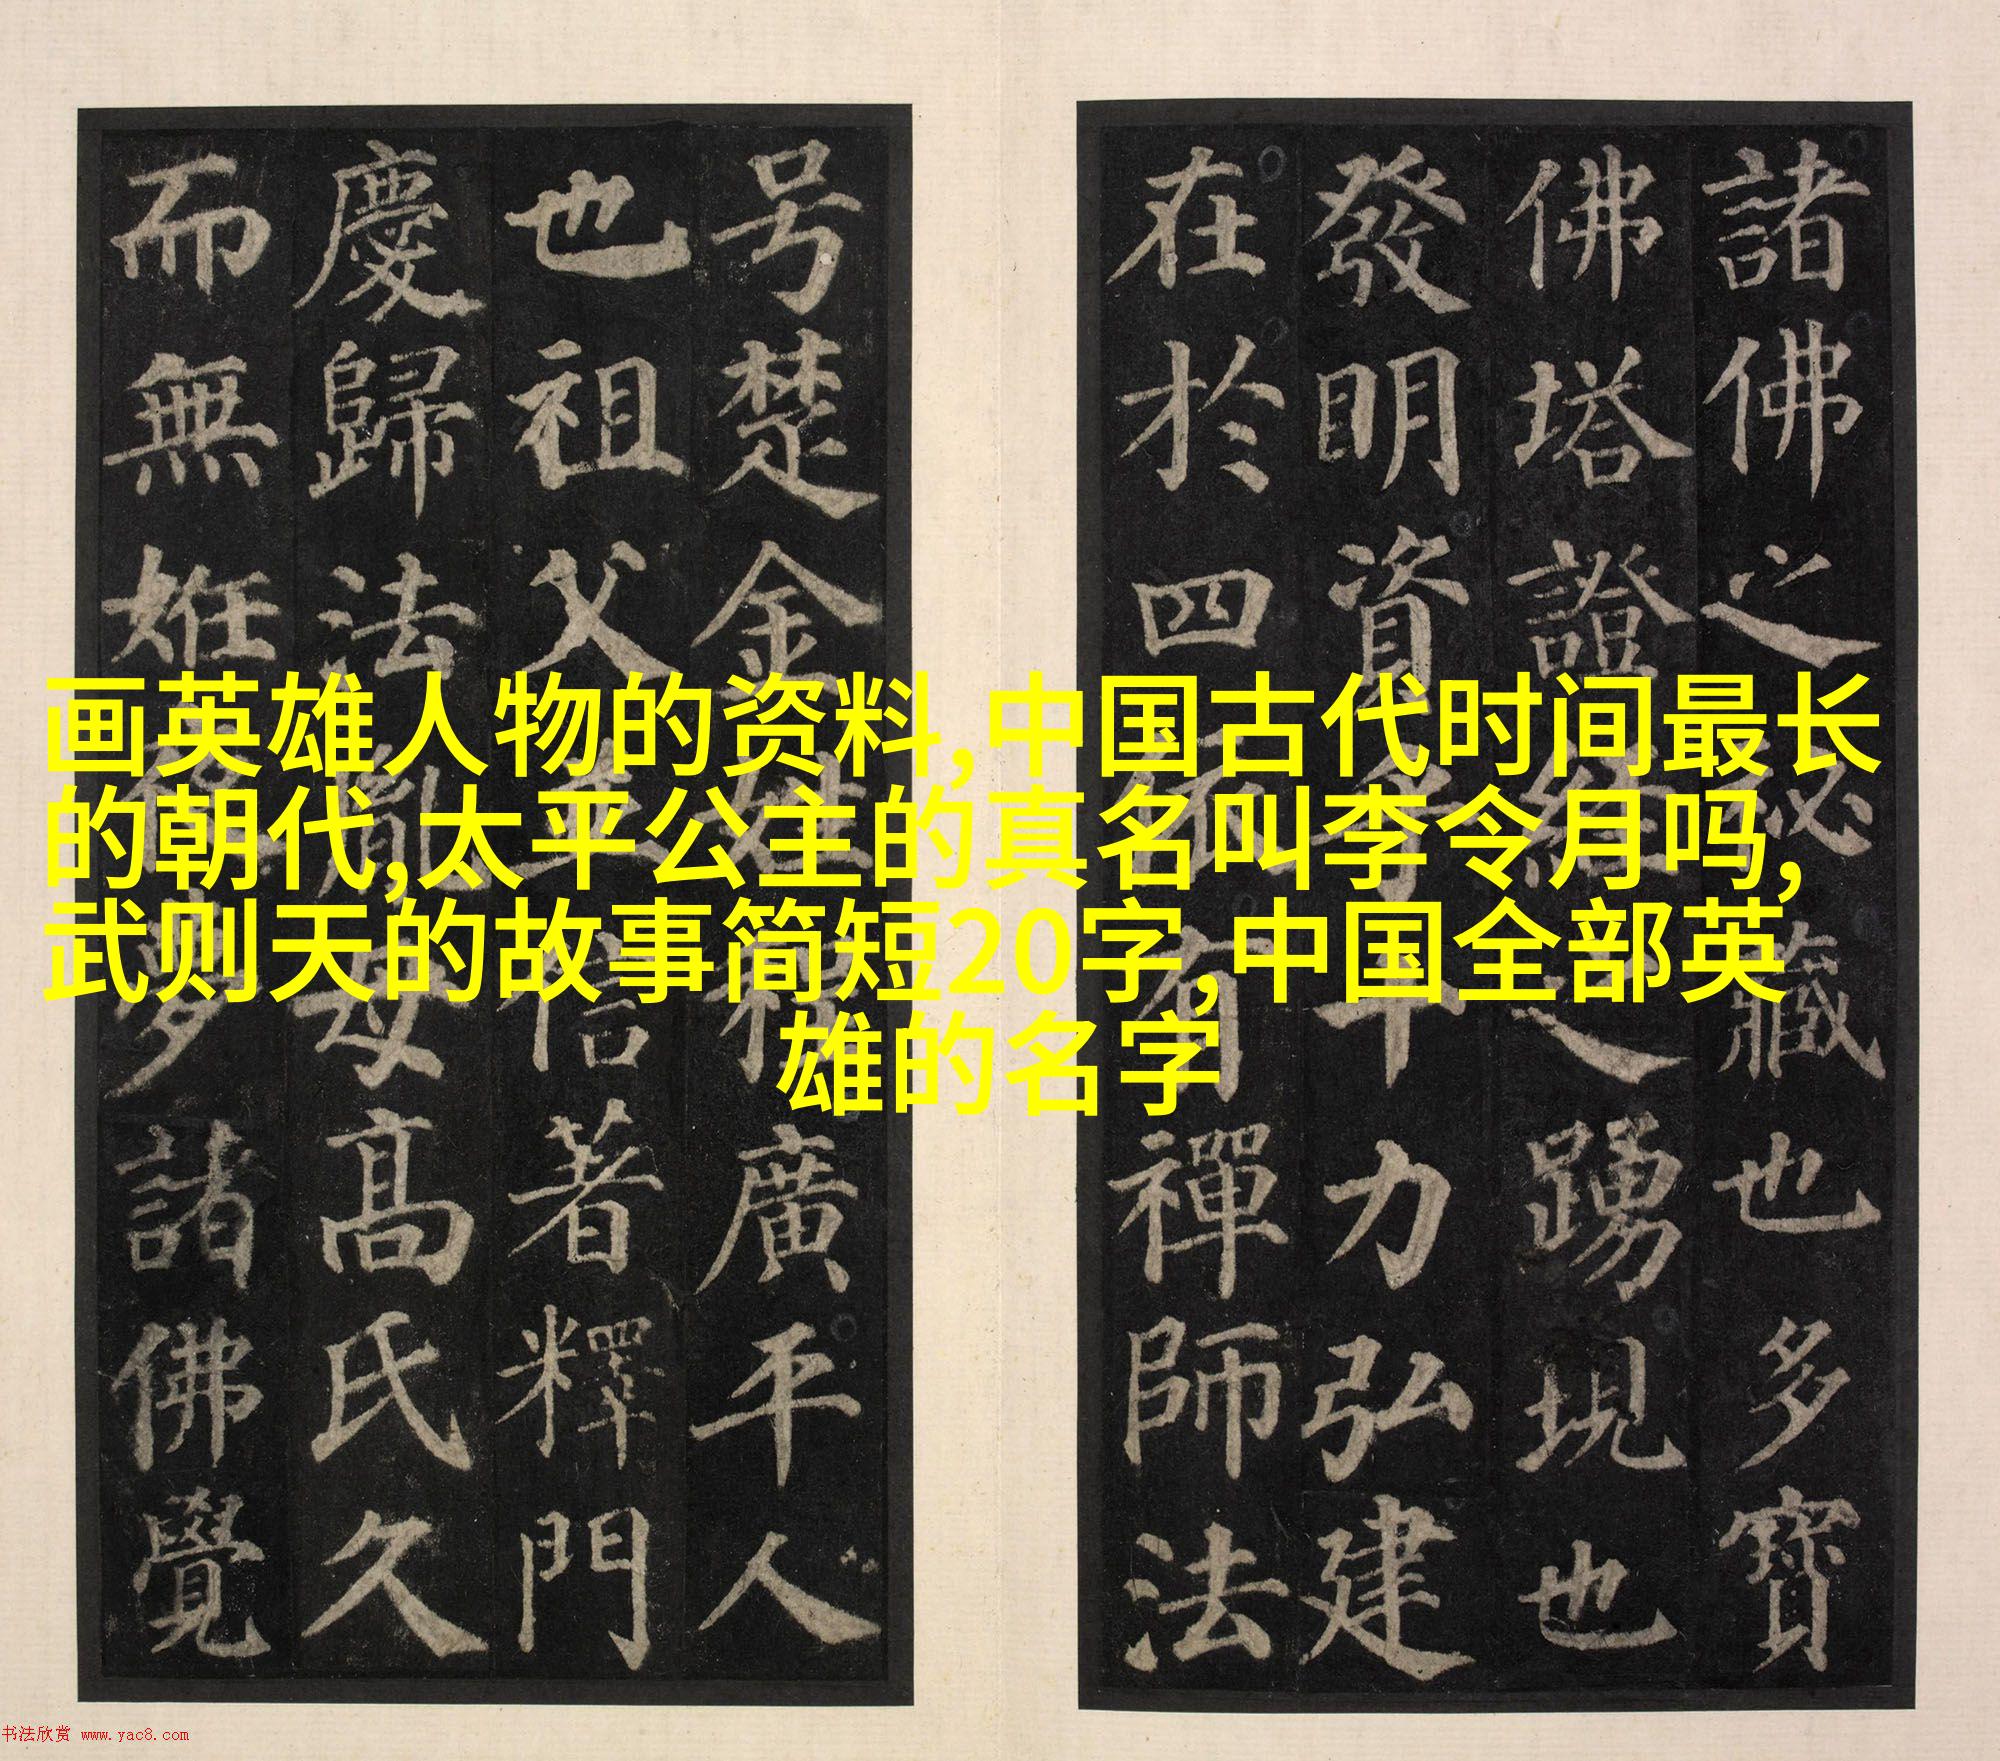 画英雄人物的资料,中国古代时间最长
的朝代,太平公主的真名叫李令月吗,
武则天的故事简短20字,中国全部英
雄的名字
諸佛之秘藏也多寶
佛塔證經之踴現也
發明資乎十力弘建
在於四依有禪師法
号楚金姓程廣平人
也祖父並信著釋門
慶歸法胤母高氏久
而無妊夜夢諸佛覺
书法欣赏 www.yac8.com